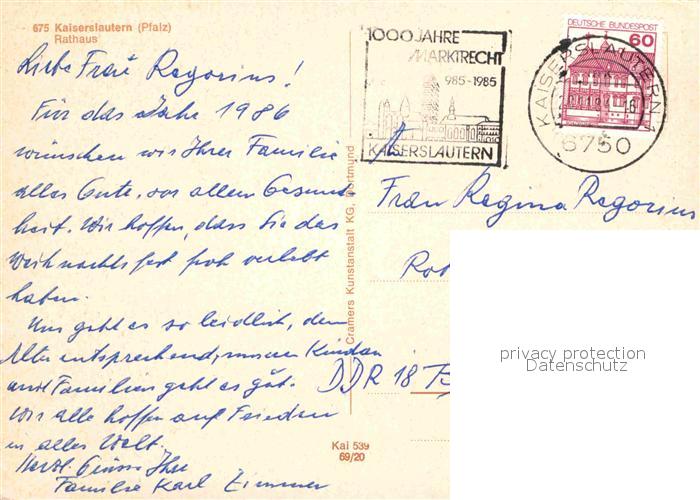 675 Kaiserslautern (Pfalz)
Rathaus
Liebe Frau Regorius!
Für das Jahr 1986
wünschen wir Ihrer Familie
alles Gute, vor allem Gesund
heit. Wir hoffen, dass Sie das
Weihnachtsfest froh verlebt
haben.
Uns geht es so leidlich, dem
Alter entsprechend, unseren Kindern
und Familien geht es gut.
Wir alle hoffen auf Frieden
in aller Welt.
Herzl. Grüsse Ihre
Familie Karl Zimmer
Cramers Kunstanstalt KG, Dortmund
Kai 539
69/20
1000 JAHRE
MARKTRECHT
985-1985
KAISERSLAUTERN
DEUTSCHE BUNDESPOST
60
KAISERSLAUTERN 1
6750
Frau Regina Regorius
DDR 18
privacy protection
Datenschutz